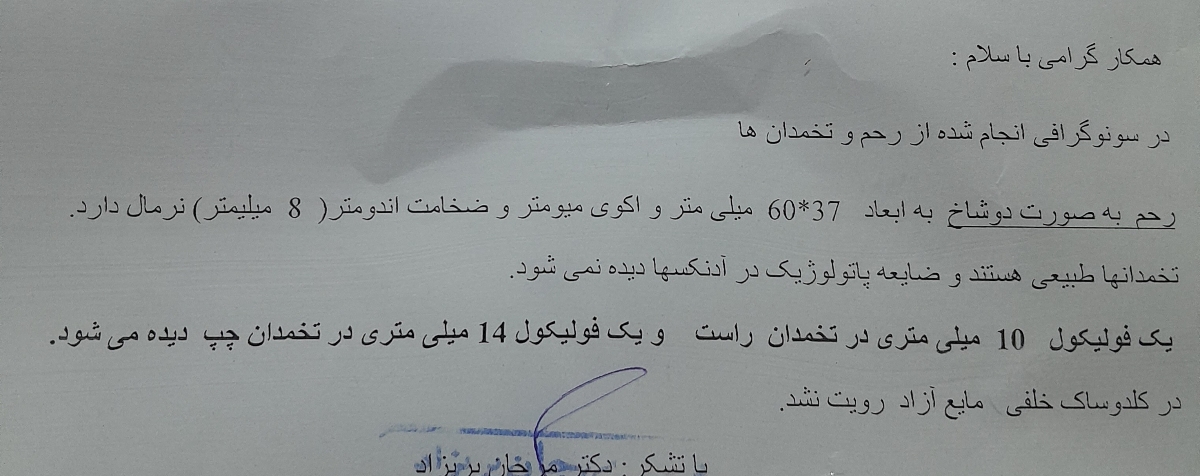 همکار گرامی با سلام :
در سونوگرافی انجام شده از رحم و تخمدان ها
رحم به صورت دوشاخ به ابعاد 37*60 میلی متر و اکوی میومتر و ضخامت اندومتر( 8 میلیمتر) نرمال دارد.
تخمدانها طبیعی هستند و ضایعه پاتولوژیک در آدنکسها دیده نمی شود.
یک فولیکول 10 میلی متری در تخمدان راست و یک فولیکول 14 میلی متری در تخمدان چپ دیده می شود.
در کلدوساک خلفی مایع آزاد رویت نشد.
با تشکر : دکتر